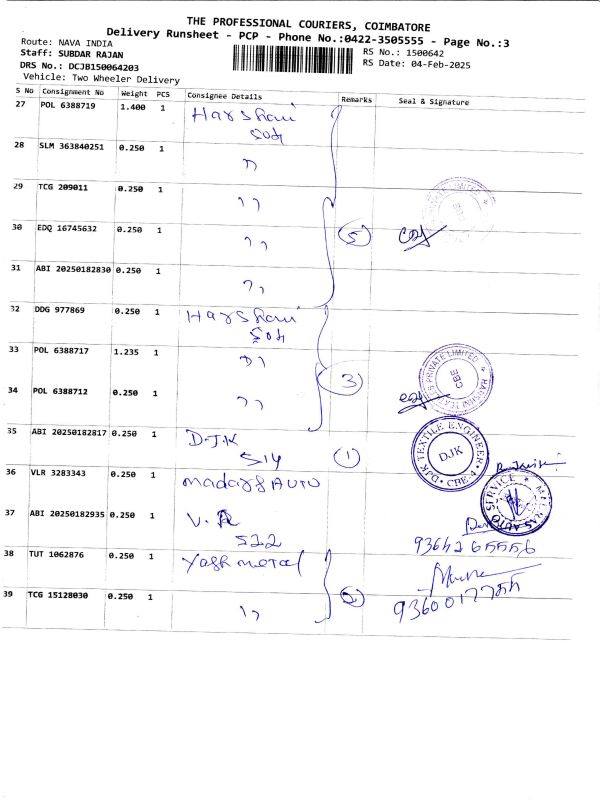 THE PROFESSIONAL COURIERS, COIMBATORE
Delivery Runsheet - PCP - Phone No.:0422-3505555 - Page No.:3
Route: NAVA INDIA
Staff: SUBDAR RAJAN
RS No.: 1500642
DRS No.: DCJB150064203
RS Date: 04-Feb-2025
Vehicle: Two Wheeler Delivery
S No Consignment No Weight PCS Consignee Details Remarks Seal & Signature
27 POL 6388719 1.400 1 Harshani
504
28 SLM 363840251 0.250 1 "
29 TCG 209011 0.250 1 "
30 EDQ 16745632 0.250 1 " 5
31 ABI 20250182830 0.250 1 "
32 DDG 977869 0.250 1 Harshani
504
33 POL 6388717 1.235 1 "
34 POL 6388712 0.250 1 " 3
PRIVATE LIMITED
CBE
35 ABI 20250182817 0.250 1 D.J.K
514 1
DJK TEXTILE ENGINEER
DJK
CBE-4
36 VLR 3283343 0.250 1 madras AUTO
AUTO SERVICE
37 ABI 20250182935 0.250 1 V.R
522
9364265556
38 TUT 1062876 0.250 1 Yash metal
39 TCG 15128030 0.250 1 " 2